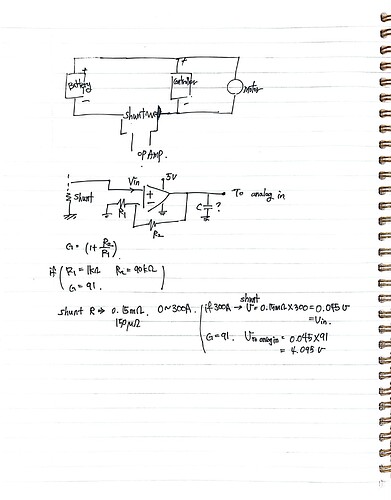 +
+
Battery
Motor
-
-
shunt
OP Amp.
5V
Vin
+
-
shunt
R1
R2
C ?
To analog in
G = (1 + R2/R1)
if ( R1 = 1kΩ R2 = 90kΩ
G = 91.
shunt R → 0.15mΩ. 0~300A.
150μΩ
shunt
if 300A → V = 0.15mΩ × 300 = 0.045 V
= Vin.
G = 91. V to analog in = 0.045 × 91
= 4.095 V